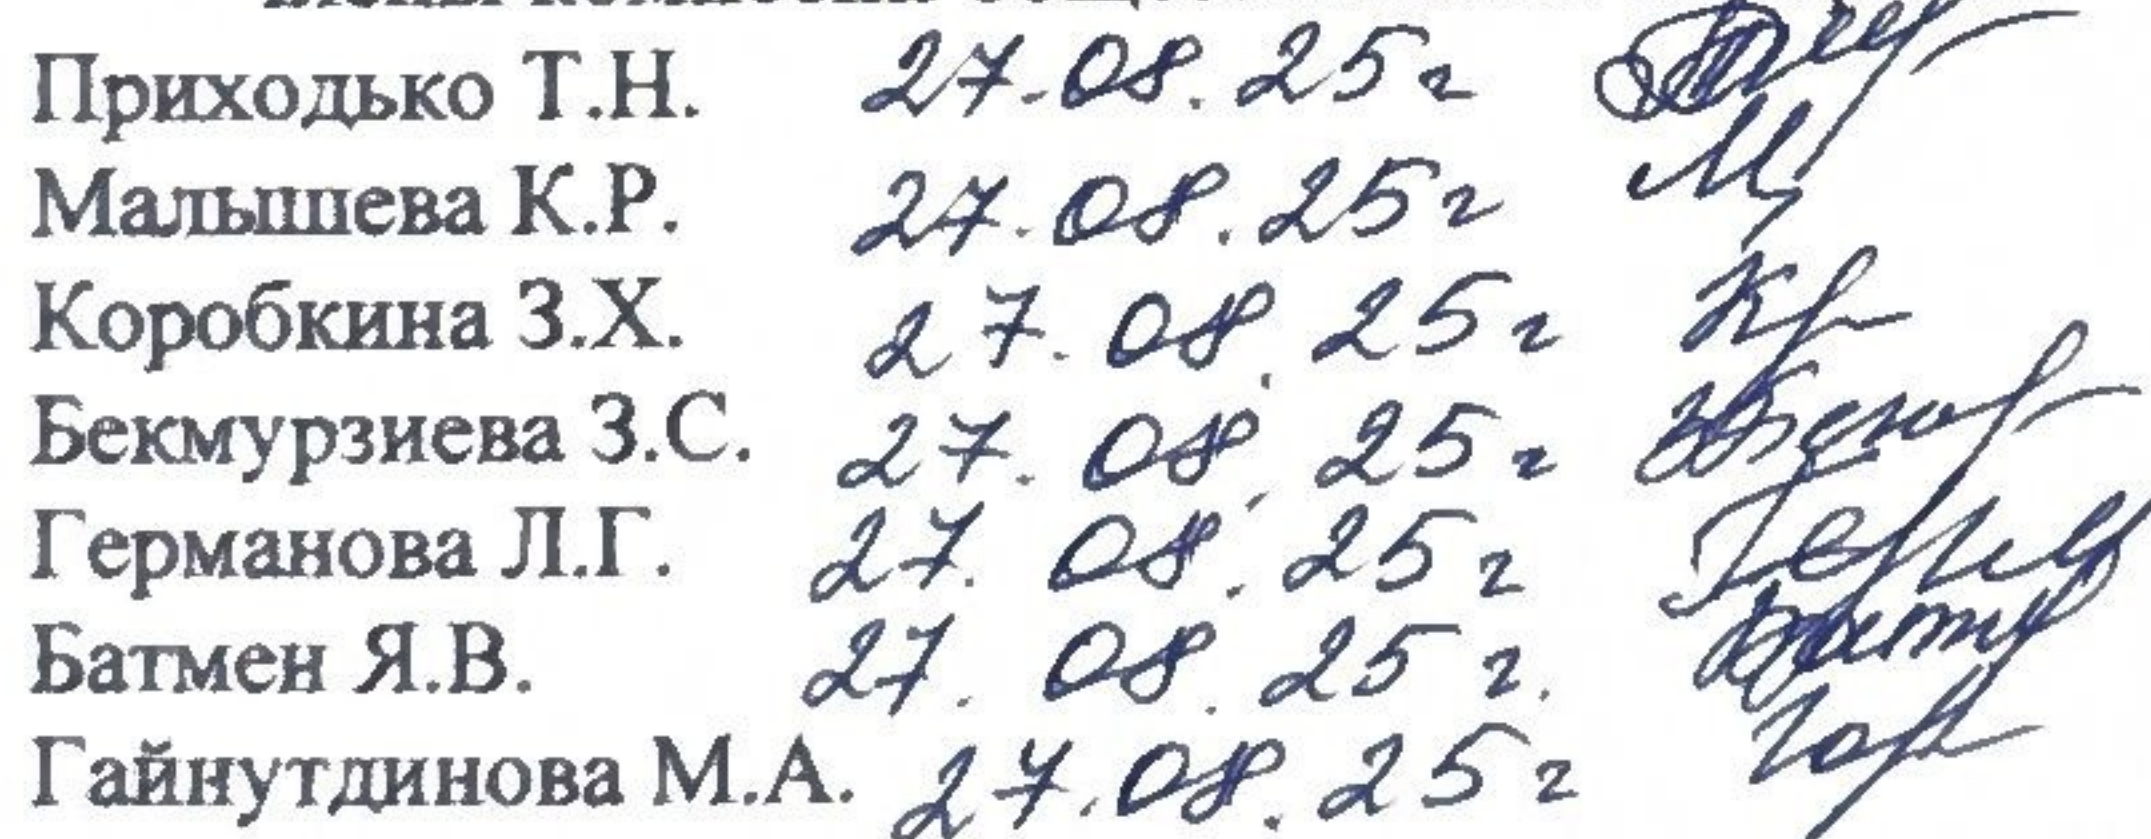 Приходько Т.Н. 27.08.25г
Малышева К.Р. 27.08.25г
Коробкина З.Х. 27.08.25г
Бекмурзиева З.С. 27.08.25г
Германова Л.Г. 27.08.25г
Батмен Я.В. 27.08.25г.
Гайнутдинова М.А. 27.08.25г